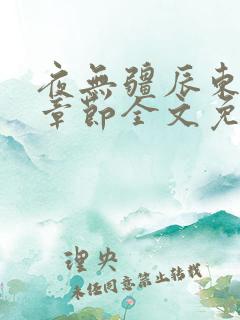 夜無疆辰東
章節全文免
理央
未经同意禁止转载